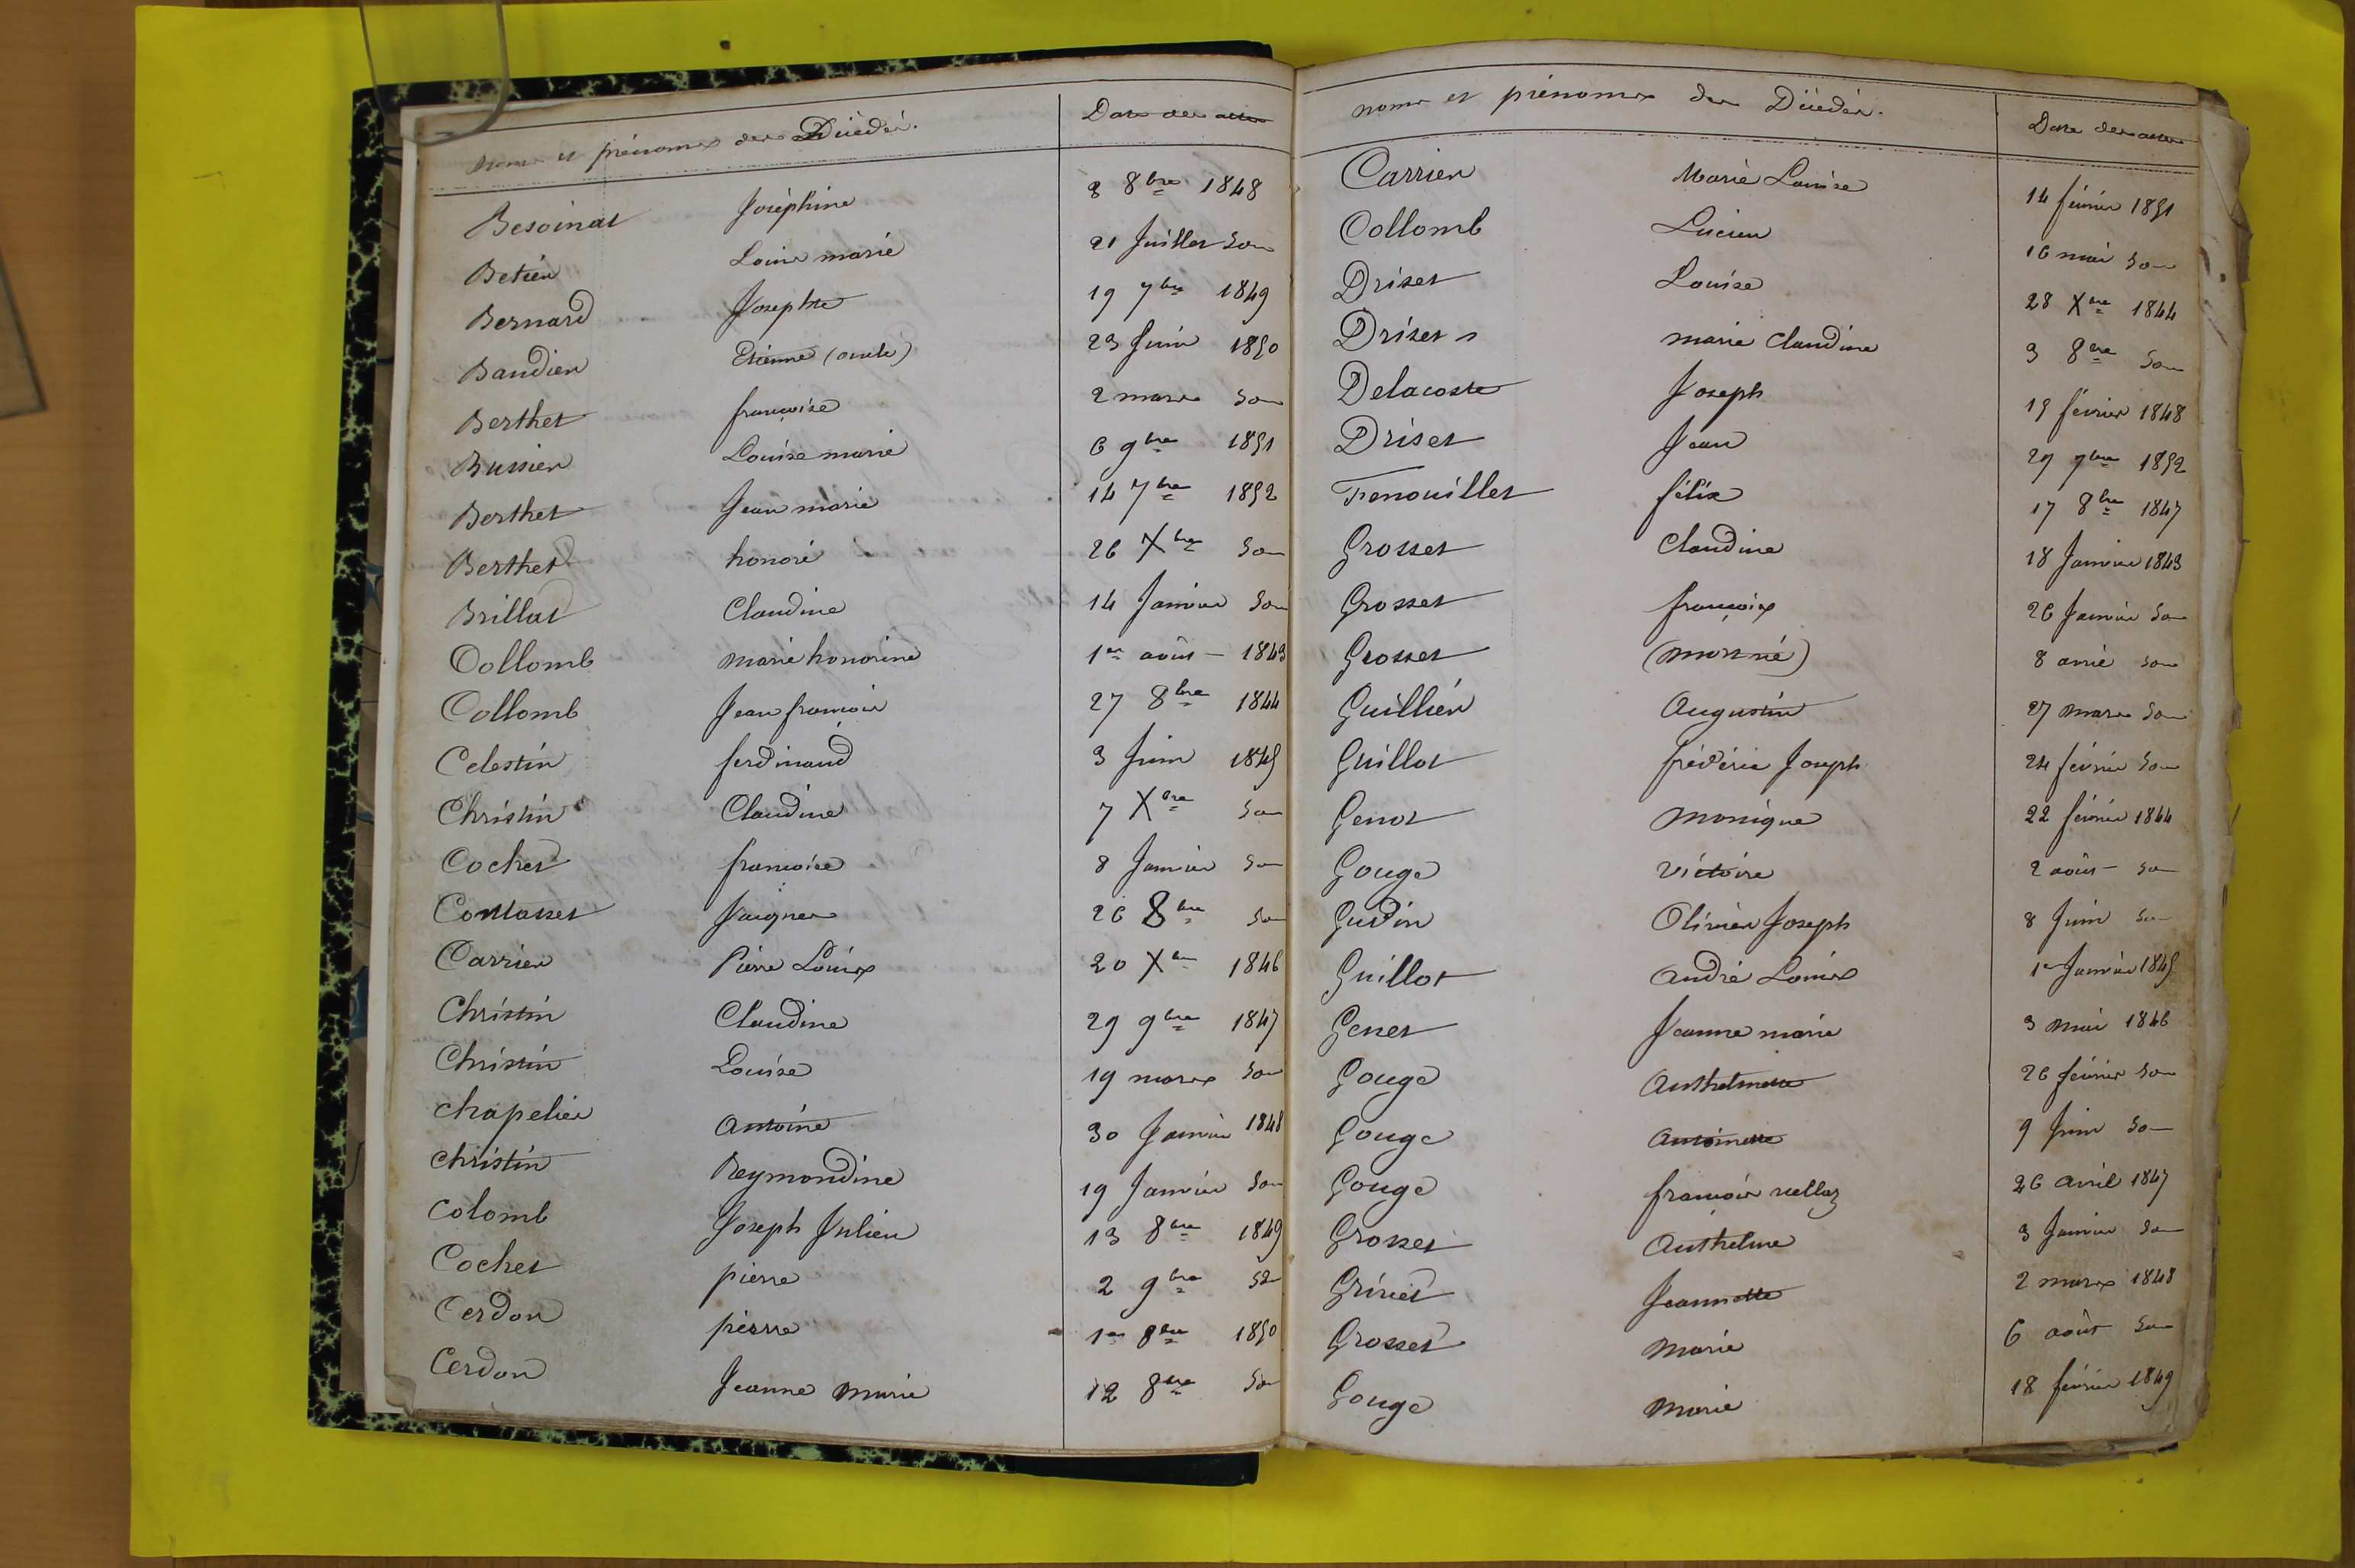 noms et prénoms des Décédés.
Date des actes
Besoinat Joséphine 3 8bre 1848
Betien Louise marie 21 Juillet do
Bernard Josephte 19 7bre 1849
Baudier Etienne 23 Juin 1850
Berthet françoise 2 mars do
Bussier Louise marie 6 9bre 1851
Berthet Jean marie 14 7bre 1852
Berthet honoré 26 Xbre do
Brillat Claudine 14 Janvier do
Collomb marie honorine 1er août 1843
Collomb Jean françois 27 8bre 1844
Celestin ferdinand 3 Juin 1845
Christin Claudine 7 Xbre do
Cochet françoise 8 Janvier do
Contasset 26 8bre do
Carrier Pierre Louis 20 Xbre 1846
Christin Claudine 29 9bre 1847
Christin Louise 19 mars do
Chapelier Antoine 30 Janvier 1848
Christin Reymondine 19 Janvier do
Colomb Joseph Julien 13 8bre 1849
Cochet pierre 2 9bre do
Cerdon pierre 1er 8bre 1850
Cerdon Jeanne marie 12 8bre do
noms et prénoms des Décédés.
Date des actes
Carrier Marie Louise 14 février 1851
Collomb Lucien 16 mai do
Driset Louise 28 Xbre 1844
Driset marie Claudine 3 8bre do
Delacoste Joseph 15 février 1848
Driset Jean 27 7bre 1852
Fenouillet félix 17 8bre 1847
Grosset Claudine 18 Janvier 1843
Grosset françois 26 Janvier do
Grosset (mort né) 8 avril do
Guillien Augustin 27 mars do
Guillot frédéric Joseph 24 février do
Genot monique 22 février 1844
Gouge victoire 2 août do
Gudin Olivier Joseph 8 Juin do
Guillot André Louis 1er Janvier 1845
Genet Jeanne marie 3 mai 1846
Gouge Anthelmette 26 février do
Gouge Antoinette 9 Juin do
Gouge françois 26 avril 1847
Grosset Anthelme 3 Janvier do
Grivet Jeannette 2 mars 1848
Grosset Marie 6 août do
Gouge Marie 18 février 1849